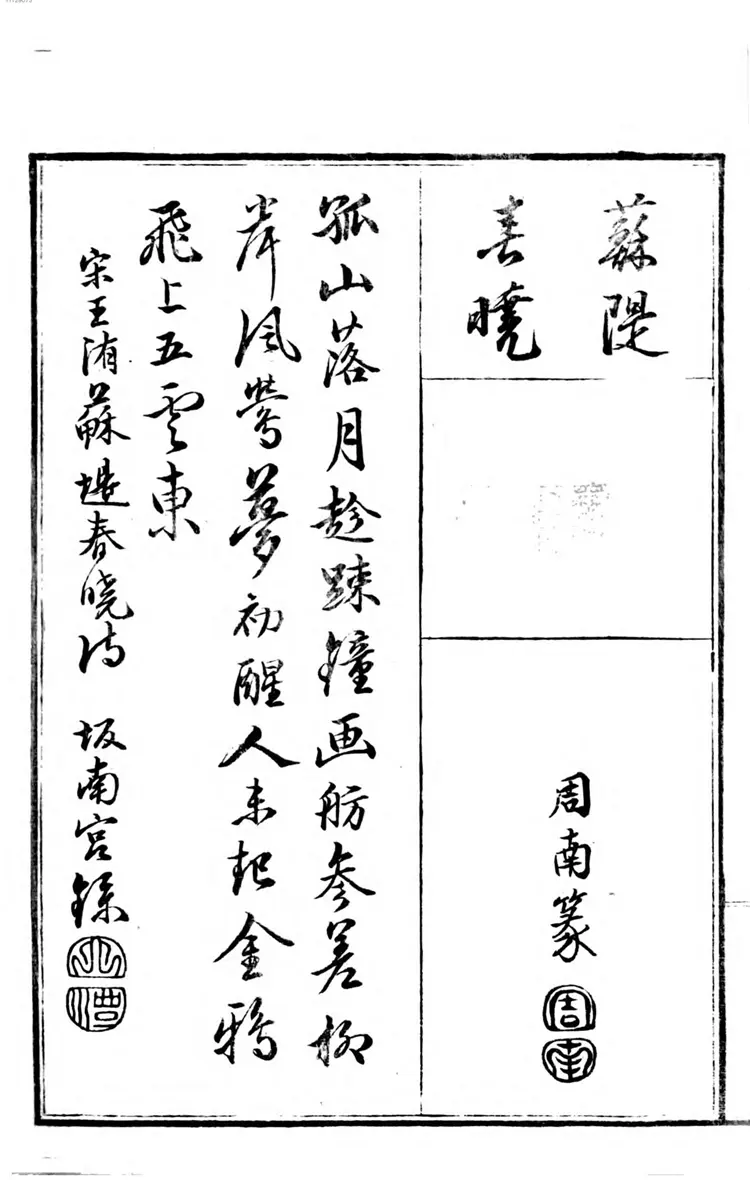 蘇隄
春曉
周南篆
周南
孤山落月趁踈鐘画舫参差柳
岸风鶯夢初醒人未起金鴉
飛上五雲東
宋王洧蘇堤春曉诗 坂南宫録